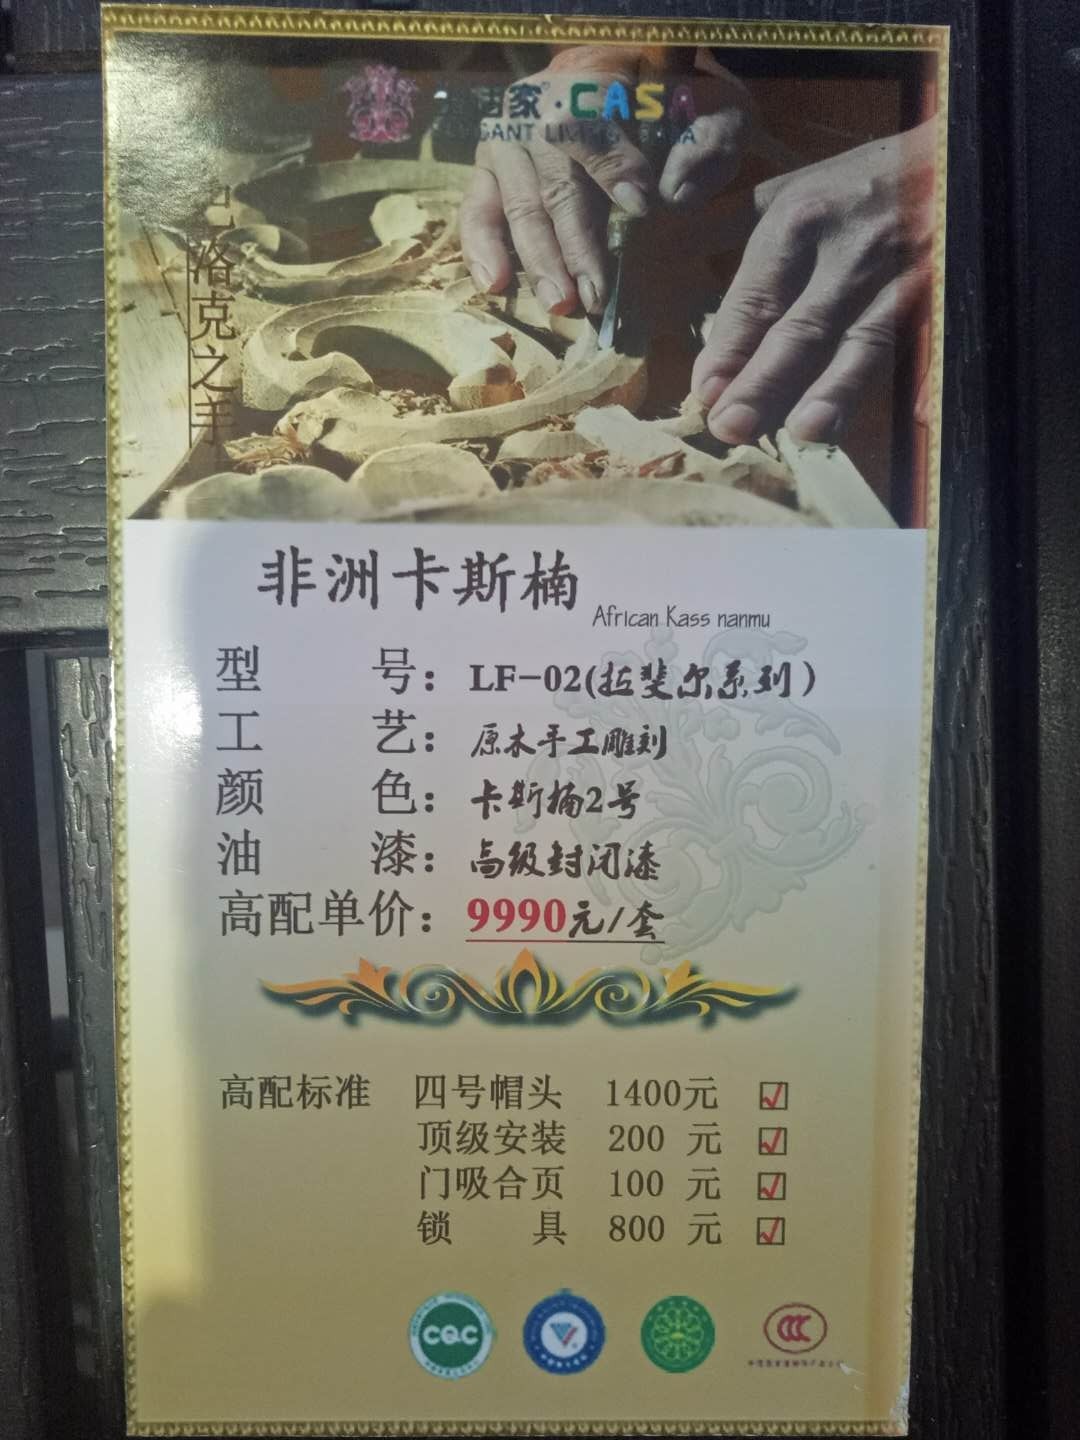 家·CASA
洛克之手
非洲卡斯楠
African Kass nanmu
型号：LF-02(拉斐尔系列）
工艺：原木手工雕刻
颜色：卡斯楠2号
油漆：高级封闭漆
高配单价：9990元/套
高配标准 四号帽头 1400元
顶级安装 200 元
门吸合页 100 元
锁具 800 元
CQC
CCC